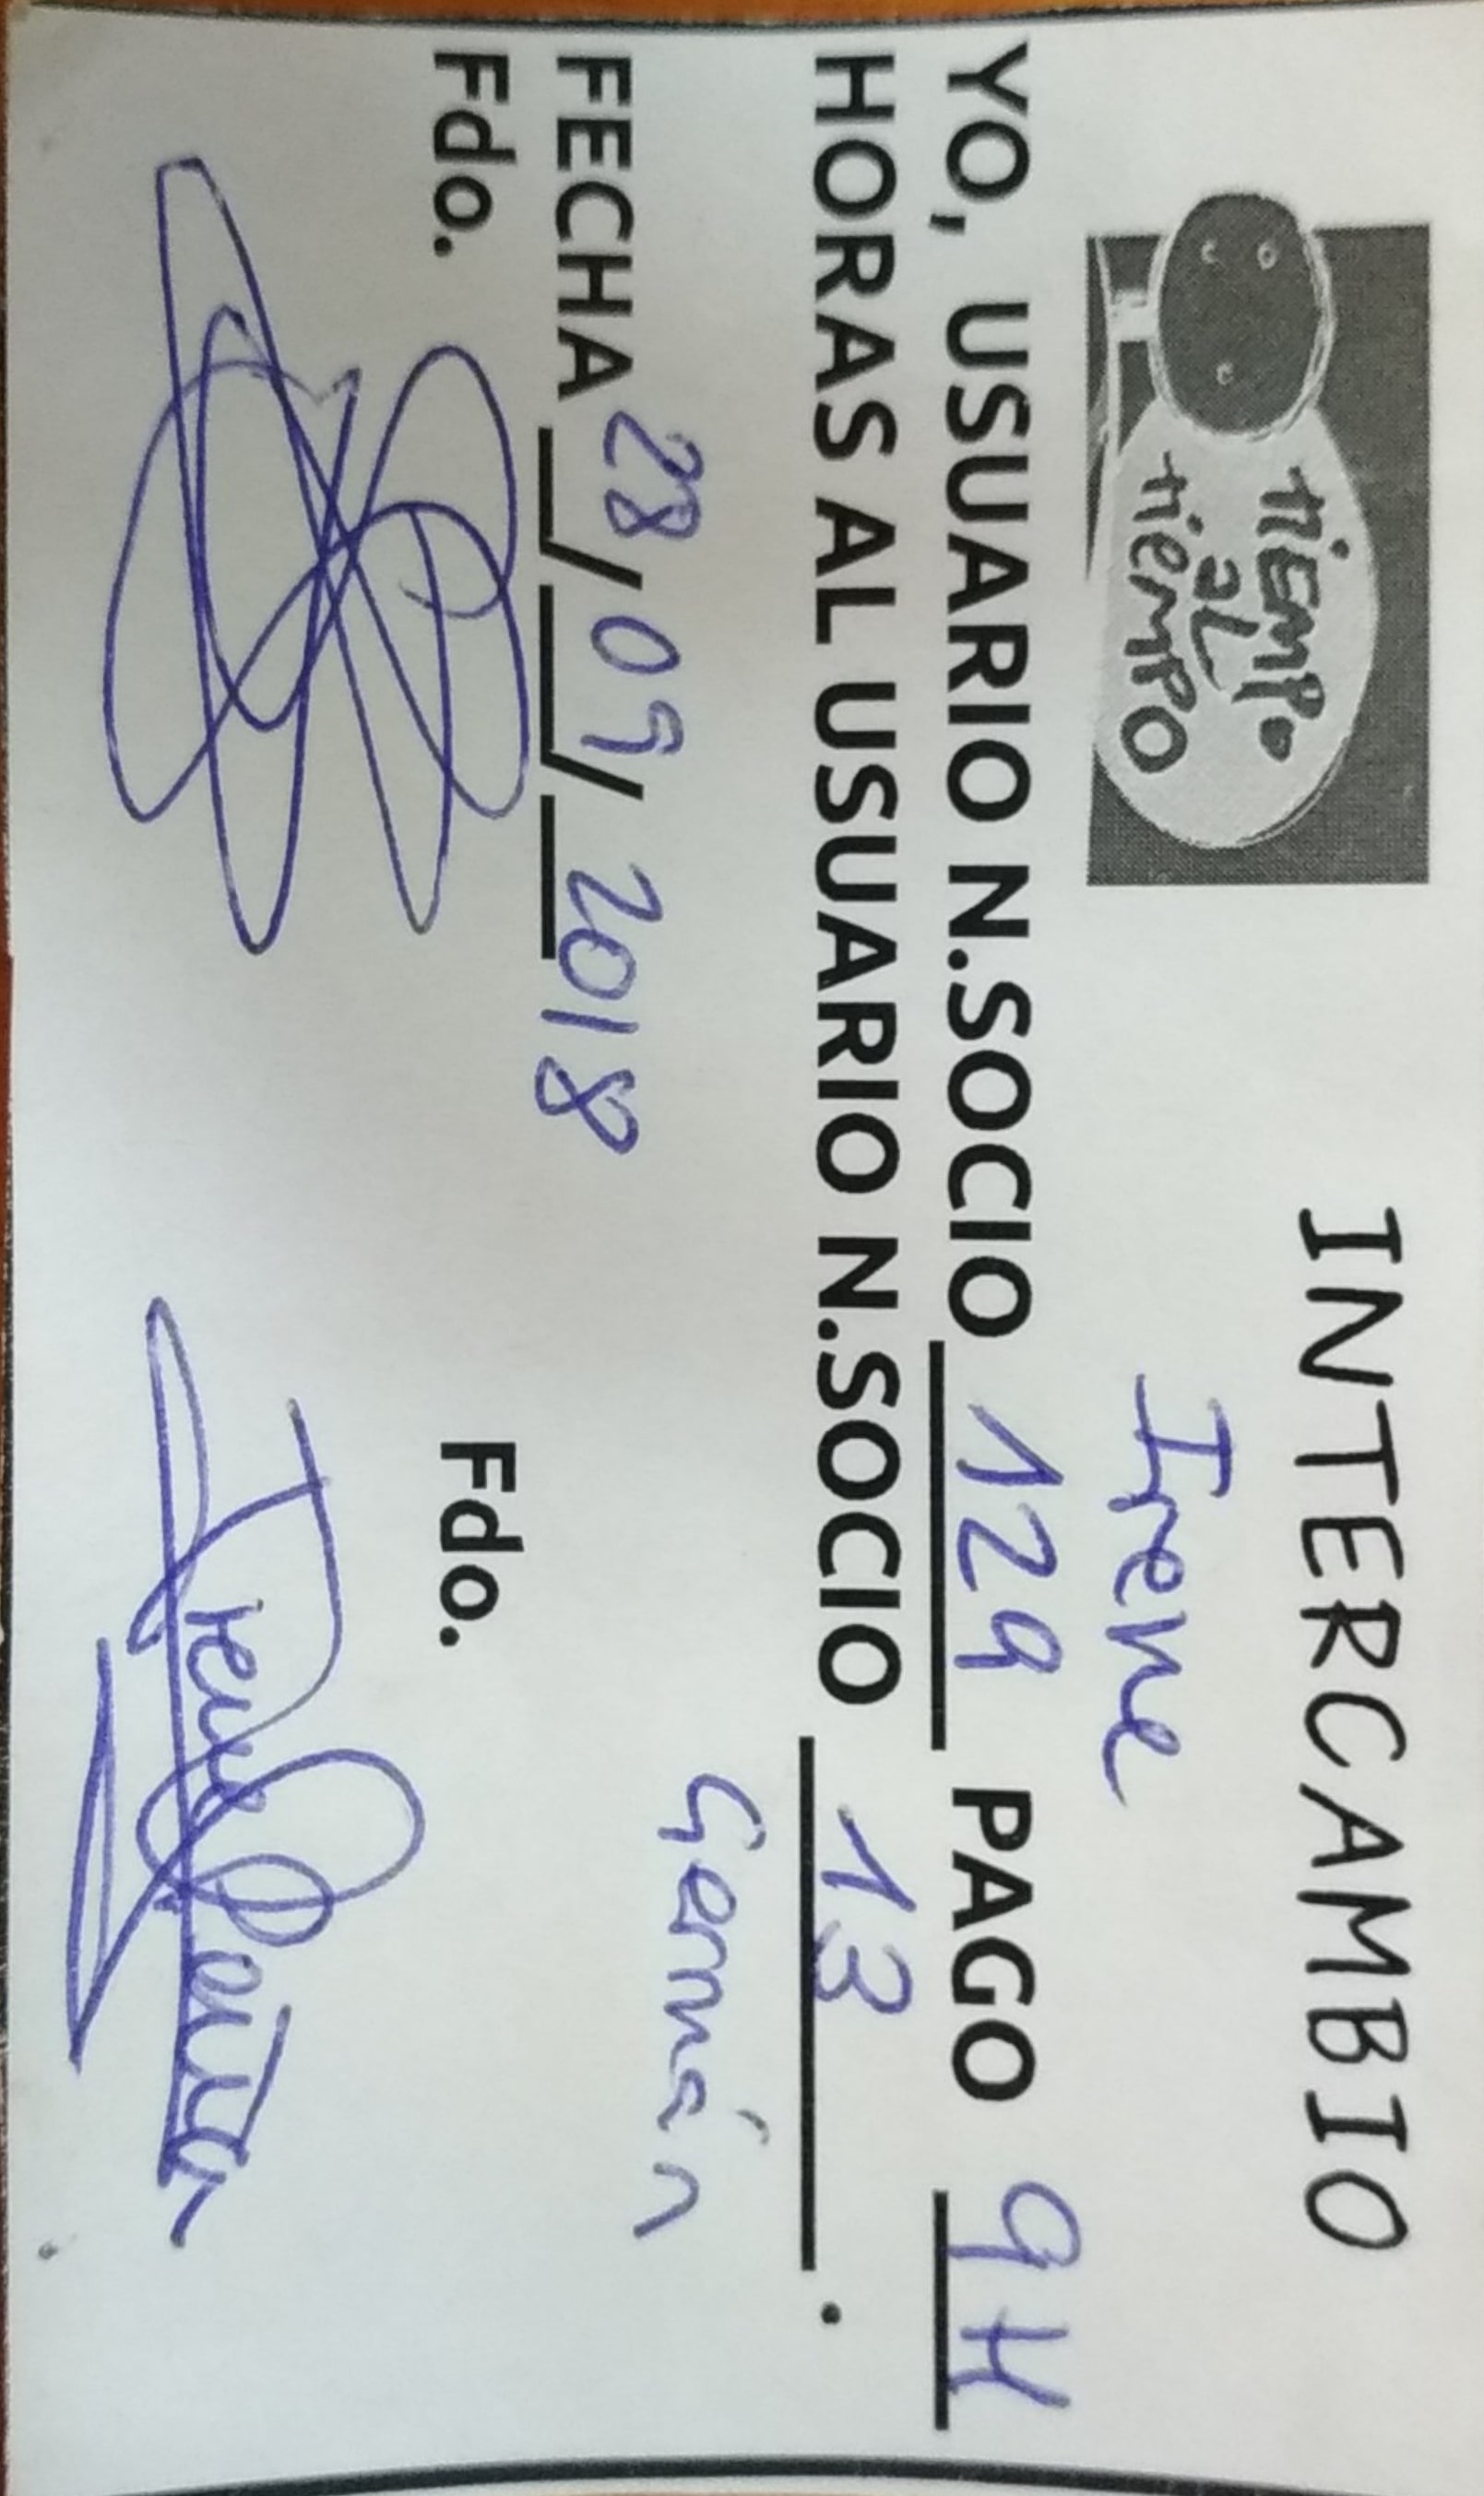 tiEMPo
aL
tiemPO
INTERCAMBIO
Irene
YO, USUARIO N.SOCIO 129 PAGO 9 H
HORAS AL USUARIO N.SOCIO 13 .
Germán
FECHA 28/09/2018
Fdo.
Fdo.
Irene Peña